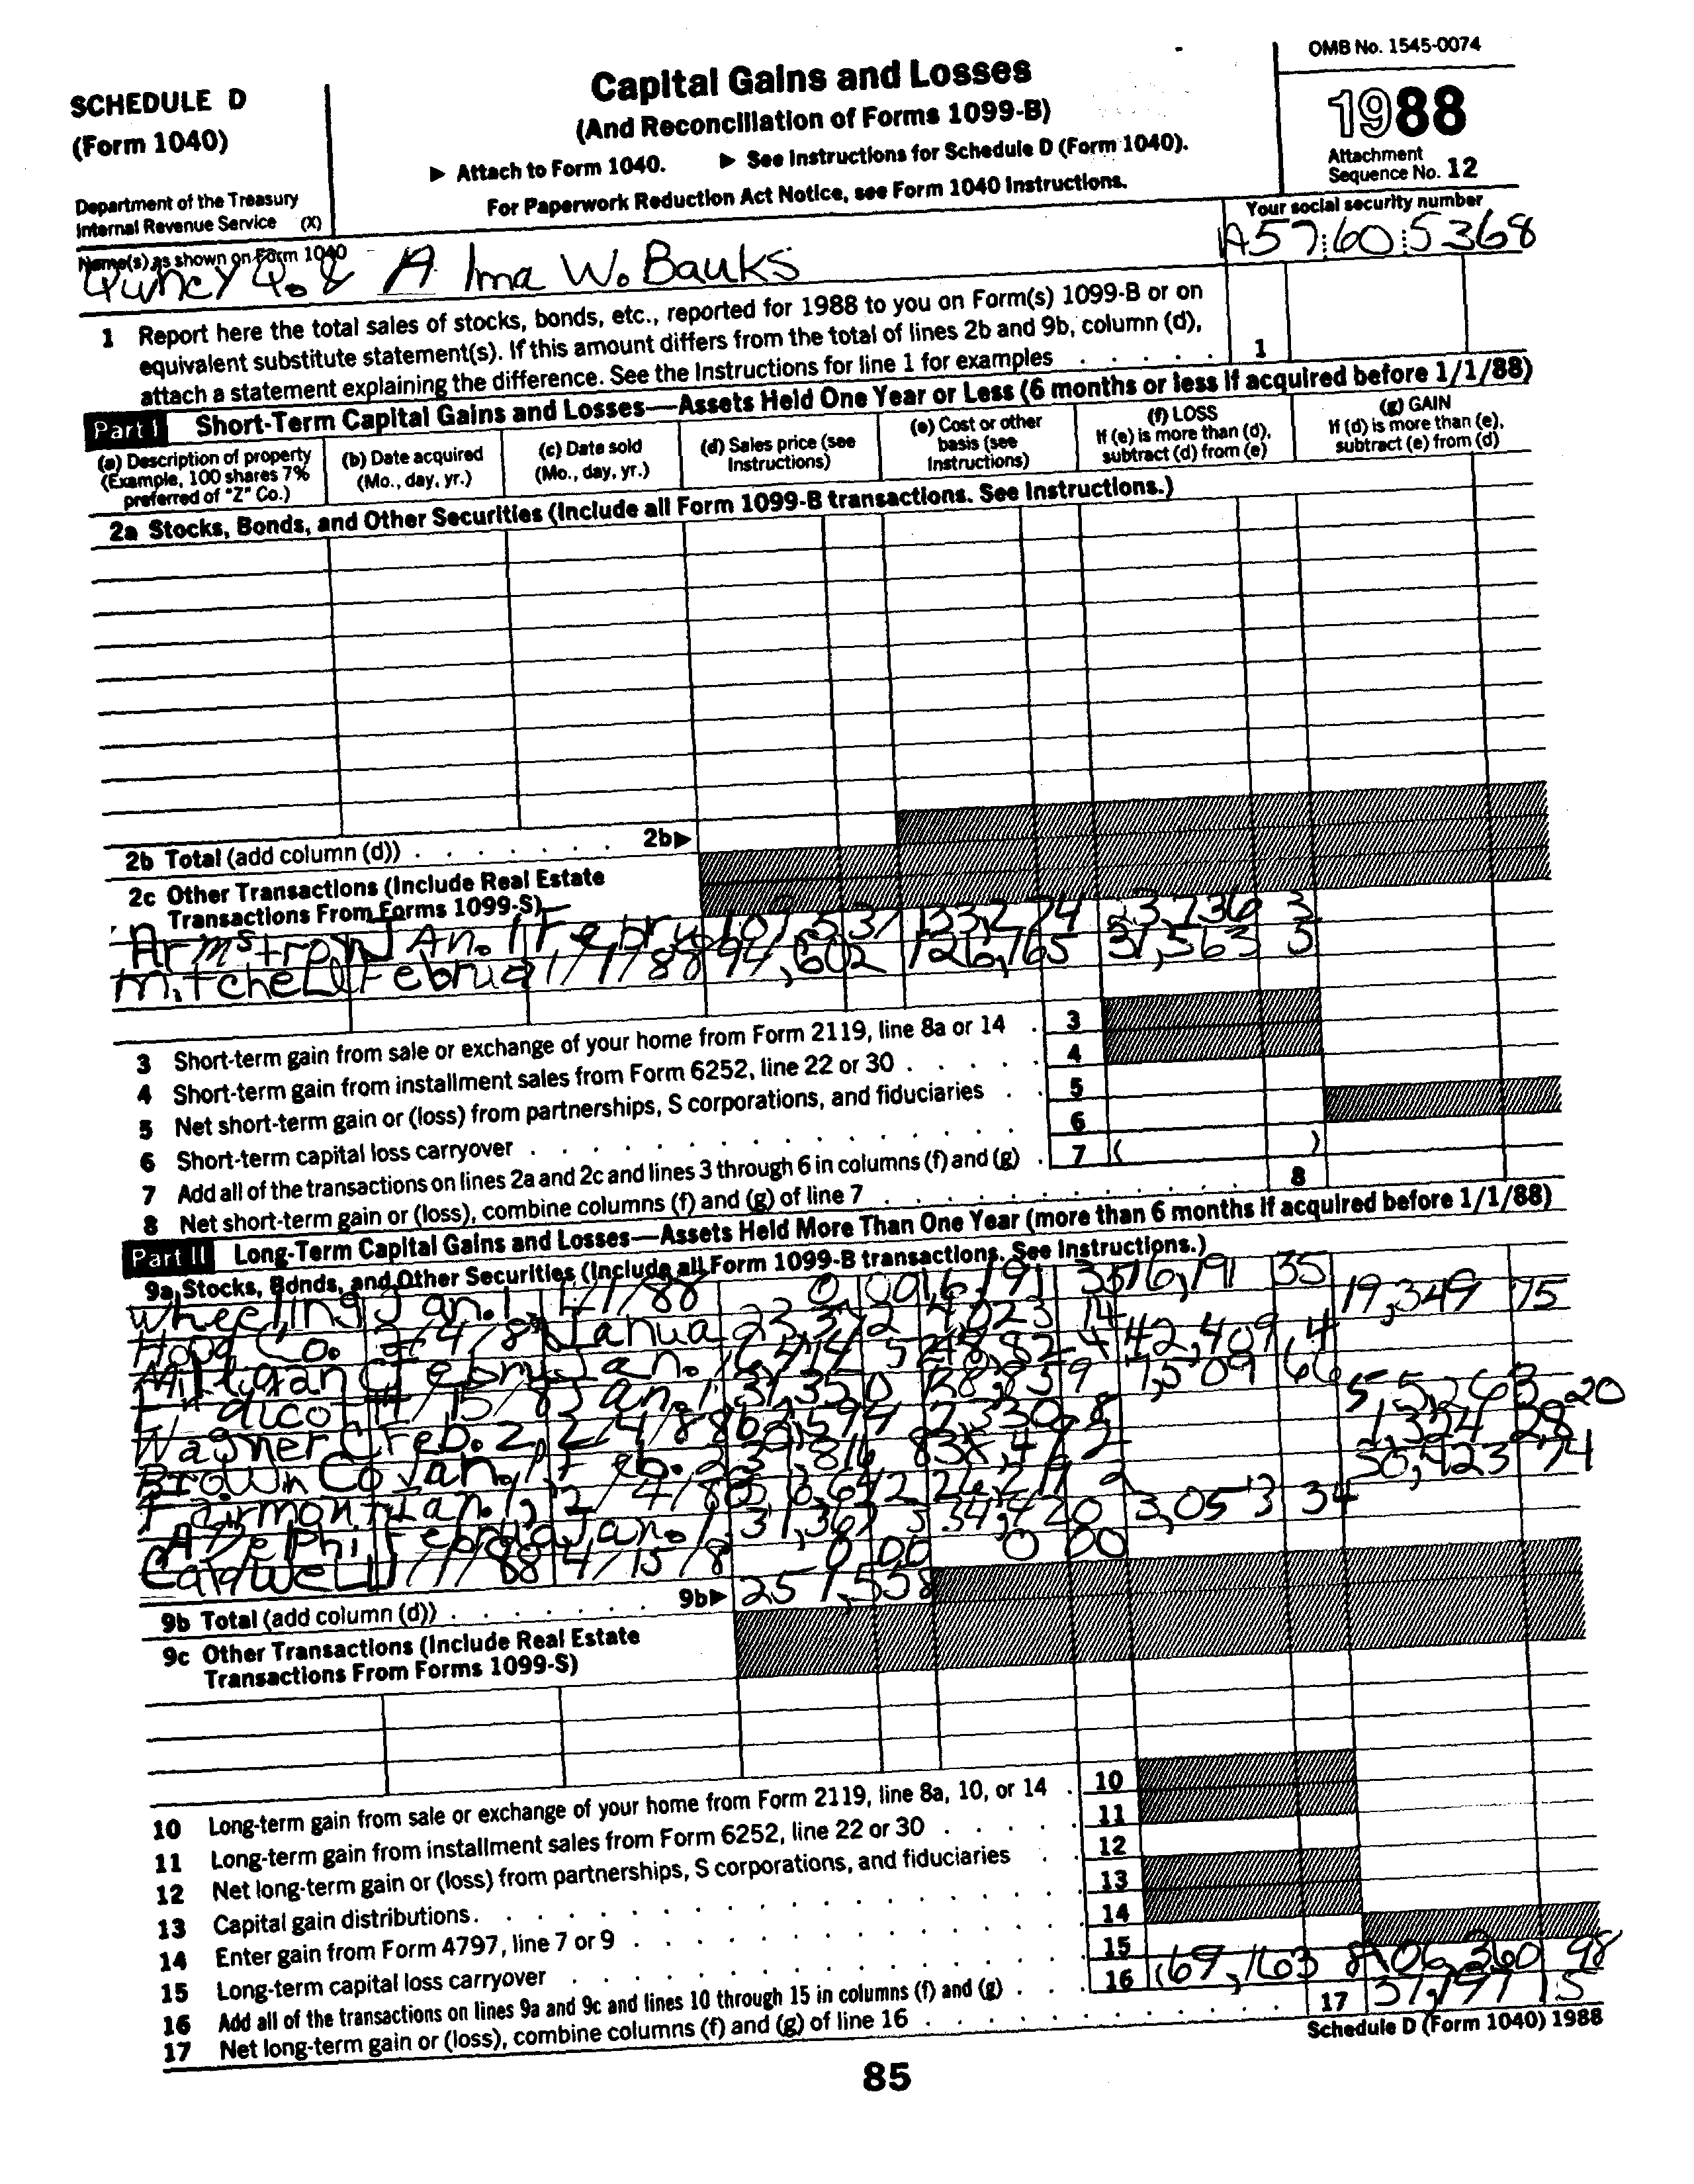 OMB No. 1545-0074
SCHEDULE D
(Form 1040)
Department of the Treasury
Internal Revenue Service (X)
Capital Gains and Losses
(And Reconciliation of Forms 1099-B)
▶ Attach to Form 1040. ▶ See Instructions for Schedule D (Form 1040).
For Paperwork Reduction Act Notice, see Form 1040 Instructions.
1988
Attachment
Sequence No. 12
Name(s) as shown on Form 1040
Quncy Q. & A Ima W. Bauks
Your social security number
A57:60:5368
1 Report here the total sales of stocks, bonds, etc., reported for 1988 to you on Form(s) 1099-B or on
equivalent substitute statement(s). If this amount differs from the total of lines 2b and 9b, column (d),
attach a statement explaining the difference. See the Instructions for line 1 for examples . . . . . 1
Part I Short-Term Capital Gains and Losses—Assets Held One Year or Less (6 months or less if acquired before 1/1/88)
(a) Description of property
(Example, 100 shares 7%
preferred of "Z" Co.)
(b) Date acquired
(Mo., day, yr.)
(c) Date sold
(Mo., day, yr.)
(d) Sales price (see
Instructions)
(e) Cost or other
basis (see
Instructions)
(f) LOSS
If (e) is more than (d),
subtract (d) from (e)
(g) GAIN
If (d) is more than (e),
subtract (e) from (d)
2a Stocks, Bonds, and Other Securities (Include all Form 1099-B transactions. See Instructions.)
2b Total (add column (d)) . . . . . . . 2b▶
2c Other Transactions (Include Real Estate
Transactions From Forms 1099-S)
Armstron JAn. 1 Febru
Mitchell Februa 1/1/88 94,602 126,165 31,563 3
3 Short-term gain from sale or exchange of your home from Form 2119, line 8a or 14 . 3
4 Short-term gain from installment sales from Form 6252, line 22 or 30 . . . . . 4
5 Net short-term gain or (loss) from partnerships, S corporations, and fiduciaries . . 5
6 Short-term capital loss carryover . . . . . . . . . . . . . . 6
7 Add all of the transactions on lines 2a and 2c and lines 3 through 6 in columns (f) and (g) . 7 ( )
8 Net short-term gain or (loss), combine columns (f) and (g) of line 7 . . . . . . . . . . . . . 8
Part II Long-Term Capital Gains and Losses—Assets Held More Than One Year (more than 6 months if acquired before 1/1/88)
9a Stocks, Bonds, and Other Securities (Include all Form 1099-B transactions. See Instructions.)
Wheeling Jan. 1, 4/1/88 0 00 35 16,191 35
Hood Co. 2/4/8 Janua 23,372 4,023 14 19,349 75
Milligan C Febru Jan. 42,409 4
Endicot 4/15/8 Jan. 1, 31,350 38,859 7,509 66
Wagner C Feb. 2, 2/4/88 20
Brown Co Jan. 1, Feb. 1,324 28
Fairmont Jan. 1, 2/4/88 50,423 74
Adelphi Februa Jan. 1 31,367 34,420 3,053 34
Caldwell 1/1/88 4/15/8 0 00 0 00
9b Total (add column (d)) . . . . . . . 9b▶ 251,558
9c Other Transactions (Include Real Estate
Transactions From Forms 1099-S)
10 Long-term gain from sale or exchange of your home from Form 2119, line 8a, 10, or 14 . 10
11 Long-term gain from installment sales from Form 6252, line 22 or 30 . . . . . 11
12 Net long-term gain or (loss) from partnerships, S corporations, and fiduciaries . . 12
13 Capital gain distributions . . . . . . . . . . . . . . . 13
14 Enter gain from Form 4797, line 7 or 9 . . . . . . . . . . . . 14
15 Long-term capital loss carryover . . . . . . . . . . . . . . 15
16 Add all of the transactions on lines 9a and 9c and lines 10 through 15 in columns (f) and (g) . . 16 (69,163 8 106,360 98
17 Net long-term gain or (loss), combine columns (f) and (g) of line 16 . . . . . . . . . . . . 17 37,197 15
Schedule D (Form 1040) 1988
85